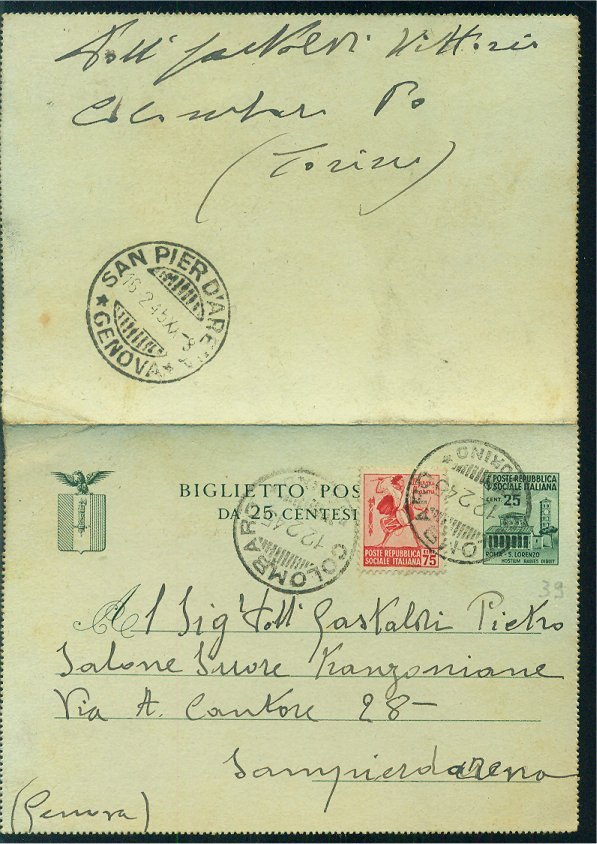 Dott Gastaldi Vittorio
Colombaro Po
(Torino)
SAN PIER D'ARENA
16.2.45 XX-8
* GENOVA *
BIGLIETTO POS
DA 25 CENTESI
COLOMBARO
12.2.45
POSTE REPUBBLICA
SOCIALE ITALIANA
CENT. 75
COLOMBARO
12.2.45
TORINO *
POSTE REPUBBLICA
SOCIALE ITALIANA
CENT. 25
ROMA - S. LORENZO
HOSTIUM RABIES DIRUIT
39
Al Sig. Dott Gastaldi Pietro
Salone Suore Franzoniane
Via A. Cantore 28-
Sampierdarena
(Genova)